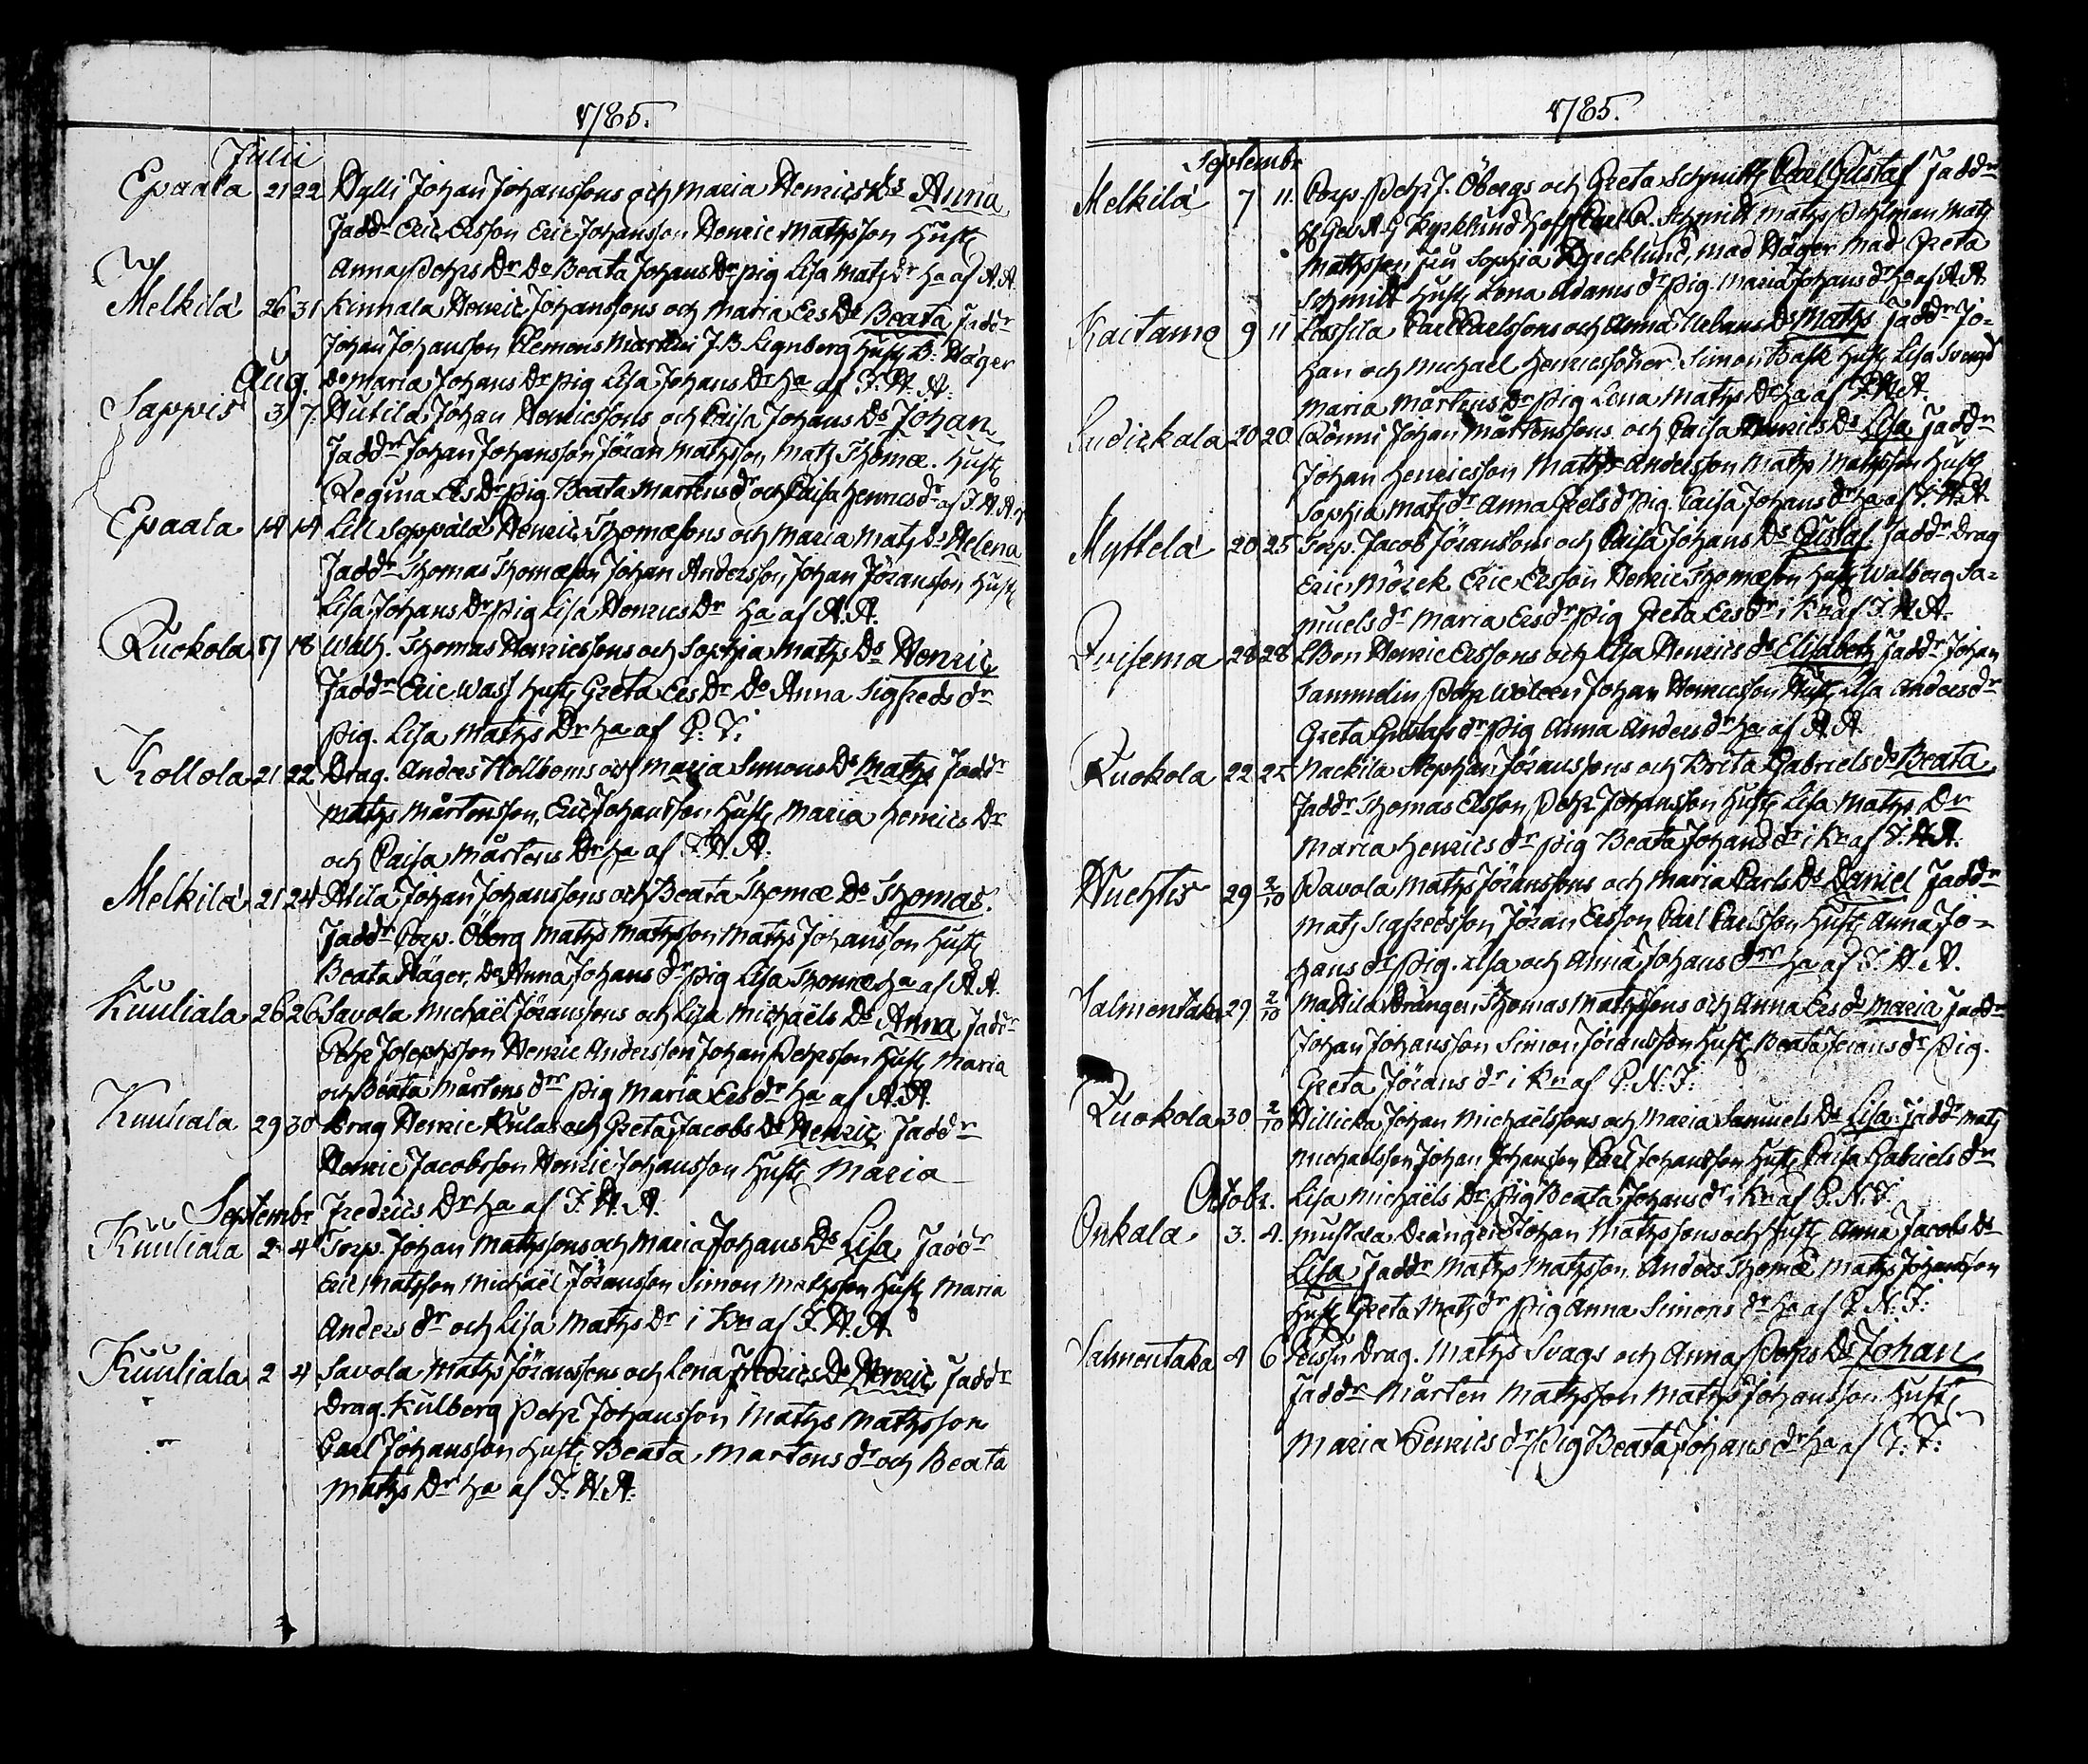 1785.
Julii
Epaala 21 22 Hylli Johan Johanssons och Maria Henrics Ds Anna
Faddr Eric Ersson Eric Johansson Henric Mathsson Hustr
Anna Pehrs Dr Do Beata Johans Dr pig Lisa Mats Dr ha af A.A.
Melkilä 26 31 Kinnala Henric Johanssons och Maria Ers Ds Beata Faddr
Johan Johansson Clemens Martini J.B. Lignberg Hustr B: Häger
Aug. Do Maria Johans Dr pig Lisa Johans Dr ha af F.H.A.
Sappis 3 7 Hutila Johan Henricssons och Caisa Johans Ds Johan
Faddr Johan Johansson Jöran Mathsson Mats Thomæ. Hustr
Regina Ers Dr pig Beata Martens dr och Caisa Henrics dr af F.H.A.
Epaala 14 14 Lill Seppälä Henric Thomæsons och Maria Mats Ds Helena
Faddr Thomas Thomæson Johan Andersson Johan Jöransson Hustr
Lisa Johans Dr pig Lisa Henrics Dr ha af A.A.
Kuokola 17 18 Walh. Thomas Henricssons och Sophia Maths Ds Henric
Faddr Eric Wass Hustr Greta Ers Dr Do Anna Sigfreds dr
pig. Lisa Maths Dr ha af P. F.
Kollola 21 22 Drag. Anders Hollboms och Maria Simons Ds Maths Faddr
Maths Mårtensson, Eric Johansson, Hustr Maria Henrics Dr
och Caisa Mårtens Dr ha af F.H.A.
Melkilä 21 24 Atila Johan Johanssons och Beata Thomæ Ds Thomas.
Faddr Corp. Öberg Maths Mathsson Maths Johansson Hustr
Beata Häger, Do Anna Johans dr pig Lisa Thomæ ha af A.A.
Kuuliala 26 26 Savola Michaël Jöranssons och Lisa Michaëls Ds Anna Faddr
Pehr Josephsson Henric Andersson Johan Pehrsson Hustr Maria
och Beata Mårtens drr pig Maria Ers dr ha af A.A.
Kuuliala 29 30 Drag Henric Kulas och Greta Jacobs Ds Henric Faddr
Henric Jacobsson Henric Johansson Hustr Maria
Septembr Fredrics Dr ha af F.H.A.
Kuuliala 2 4 Torp. Johan Mathssons och Maria Johans Ds Lisa Faddr
Eric Matsson Michaël Jöransson Simon Mathsson Hustr Maria
Anders dr och Lisa Maths Dr i Kn af F.H.A.
Kuuliala 2 4 Savola Maths Jöranssons och Lena Fredrics Ds Henric Faddr
Drag. Kulberg Pehr Johansson Maths Mathsson
Carl Johansson Hustr Beata Martens dr och Beata
Maths Dr ha af F.H.A.
1785.
Septembr
Melkilä 7 11. Corp. Pehr J. Öbergs och Greta Schmitts Carl Gustaf Faddr
A G Kyrklund Carl R. Schmidt Maths Pehlman Maths
Mathsson fru Sophia Kyrcklund, mad Häger Mad Greta
Schmidt Hustr Lena Adams dr pig. Maria Johans dr ha af A.A.
Kaitamo 9 11 Lassila Carl Carlssons och Anna Urbans Ds Maths Faddr Jo=
han och Michael Henricssöner Simon Bask Hustr Lisa
Maria Mårtens Dr pig Lena Maths Dr ha af F.H.A.
Sudickala 20 20 Rönni Johan Mårtenssons och Caisa Henrics Ds Lisa Faddr
Johan Henricsson Maths Andersson Maths Mathsson Hustr
Sophia Mats dr Anna Grels dr pig. Caisa Johans dr ha af F.H.A.
Myttelä 20 25 Torp. Jacob Jöranssons och Caisa Johans Ds Gustaf Faddr Drag
Eric Mörck Eric Ersson Henric Thomæson Hustr Walborg Sa=
muels dr Maria Ers dr pig Greta Ers dr i Kn af F.H.A.
28 28 Henric Erssons och Lisa Henrics ds Elisabeth Faddr Johan
Sammelin Pehr Johan Henricsson Hustr Lisa Anders dr
Greta Gustafs dr pig Anna Anders dr ha af A.A.
Kuokola 22 25 Nackila Stephan Jöranssons och Brita Gabriels ds Beata
Faddr Thomas Ersson, Pehr Johansson Hustr Lisa Maths Dr
Maria Henrics dr pig Beata Johans dr i Kn af F.H.A.
Huchtis 29 2/10 Pavola Maths Jöranssons och Maria Carls Ds Daniel Faddr
Mats Sigfredsson Jöran Ersson Carl Carlsson Hustr Anna Jo=
hans dr pig. Lisa och Anna Johans drr ha af F.H.A.
Salmentaka 29 2/10 Mattila Drängen Thomas Mathssons och Anna Ers ds Maria Faddr
Johan Johansson Simon Jöransson Hustr Beata Jörans dr pig.
Greta Jörans dr i Kn af P.N.F.
Kuokola 30 2/10 Hillicka Johan Michaëlssons och Maria Samuels Ds Lisa. Faddr Mats
Michaelsson Johan Johansson Carl Johansson Hustr Caisa Gabriels dr
Octobr. Lisa Michaëls Dr pig Beata Johans dr i Kn af P.N.F.
Onkala 3. 4. Mustala Drängens Johan Mathssons och Hustr Anna Jacobs Ds
Lisa Faddr Maths Mathsson, Anders Thomæ Maths Johansson
Hustr Greta Mats dr pig Anna Simons dr ha af P.N.F.
Salmentaka 4 6 Drag. Maths Svags och Anna Pehrs Ds Johan
Faddr Mårten Mathsson Maths Johansson Hustr
Maria Henrics dr pig Beata Johans dr ha af P. F.